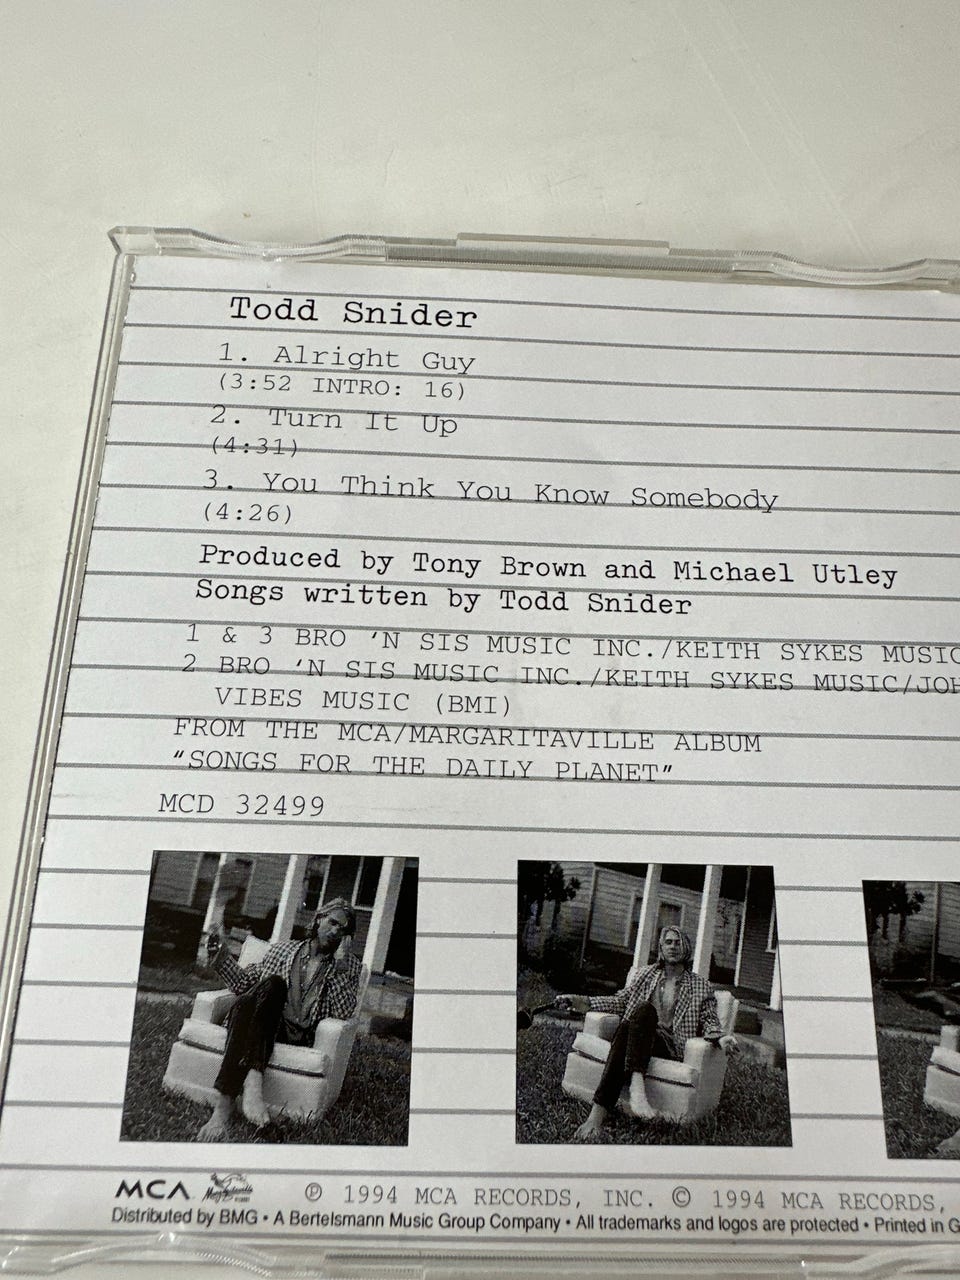 Todd Snider
1. Alright Guy
(3:52 INTRO: 16)
2. Turn It Up
(4:31)
3. You Think You Know Somebody
(4:26)
Produced by Tony Brown and Michael Utley
Songs written by Todd Snider
1 & 3 BRO 'N SIS MUSIC INC./KEITH SYKES MUSIC
2 BRO 'N SIS MUSIC INC./KEITH SYKES MUSIC/JOH
VIBES MUSIC (BMI)
FROM THE MCA/MARGARITAVILLE ALBUM
"SONGS FOR THE DAILY PLANET"
MCD 32499
MCA Margaritaville ℗ 1994 MCA RECORDS, INC. © 1994 MCA RECORDS,
Distributed by BMG • A Bertelsmann Music Group Company • All trademarks and logos are protected • Printed in G